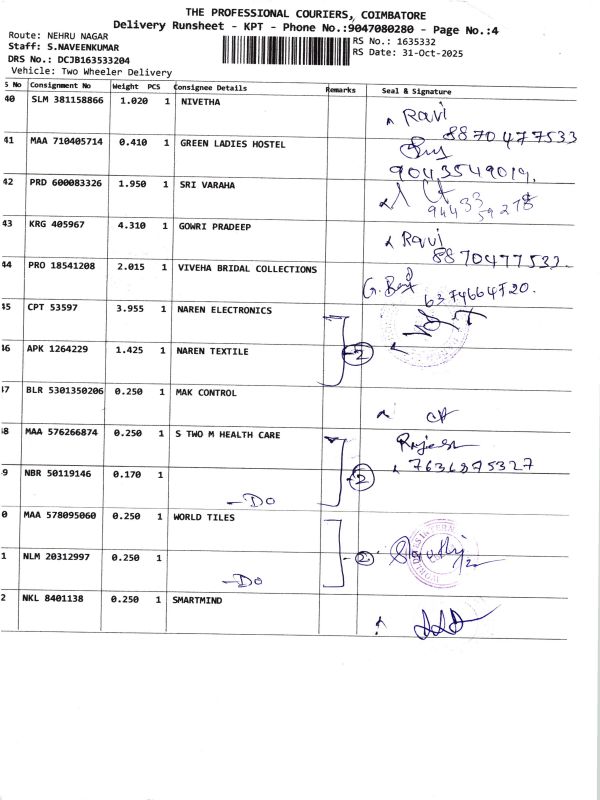 THE PROFESSIONAL COURIERS, COIMBATORE
Delivery Runsheet - KPT - Phone No.:9047080280 - Page No.:4
Route: NEHRU NAGAR
RS No.: 1635332
Staff: S.NAVEENKUMAR
RS Date: 31-Oct-2025
DRS No.: DCJB163533204
Vehicle: Two Wheeler Delivery
S No Consignment No Weight PCS Consignee Details Remarks Seal & Signature
40 SLM 381158866 1.020 1 NIVETHA Ravi
8870477533
41 MAA 710405714 0.410 1 GREEN LADIES HOSTEL
9043549019.
42 PRD 600083326 1.950 1 SRI VARAHA
94433 59278
43 KRG 405967 4.310 1 GOWRI PRADEEP Ravi
8870477533.
44 PRO 18541208 2.015 1 VIVEHA BRIDAL COLLECTIONS
6374664720.
45 CPT 53597 3.955 1 NAREN ELECTRONICS
46 APK 1264229 1.425 1 NAREN TEXTILE 2
47 BLR 5301350206 0.250 1 MAK CONTROL
48 MAA 576266874 0.250 1 S TWO M HEALTH CARE Rajesh
7631875327
9 NBR 50119146 0.170 1 2
-Do
0 MAA 578095060 0.250 1 WORLD TILES
1 NLM 20312997 0.250 1 2
-Do
2 NKL 8401138 0.250 1 SMARTMIND